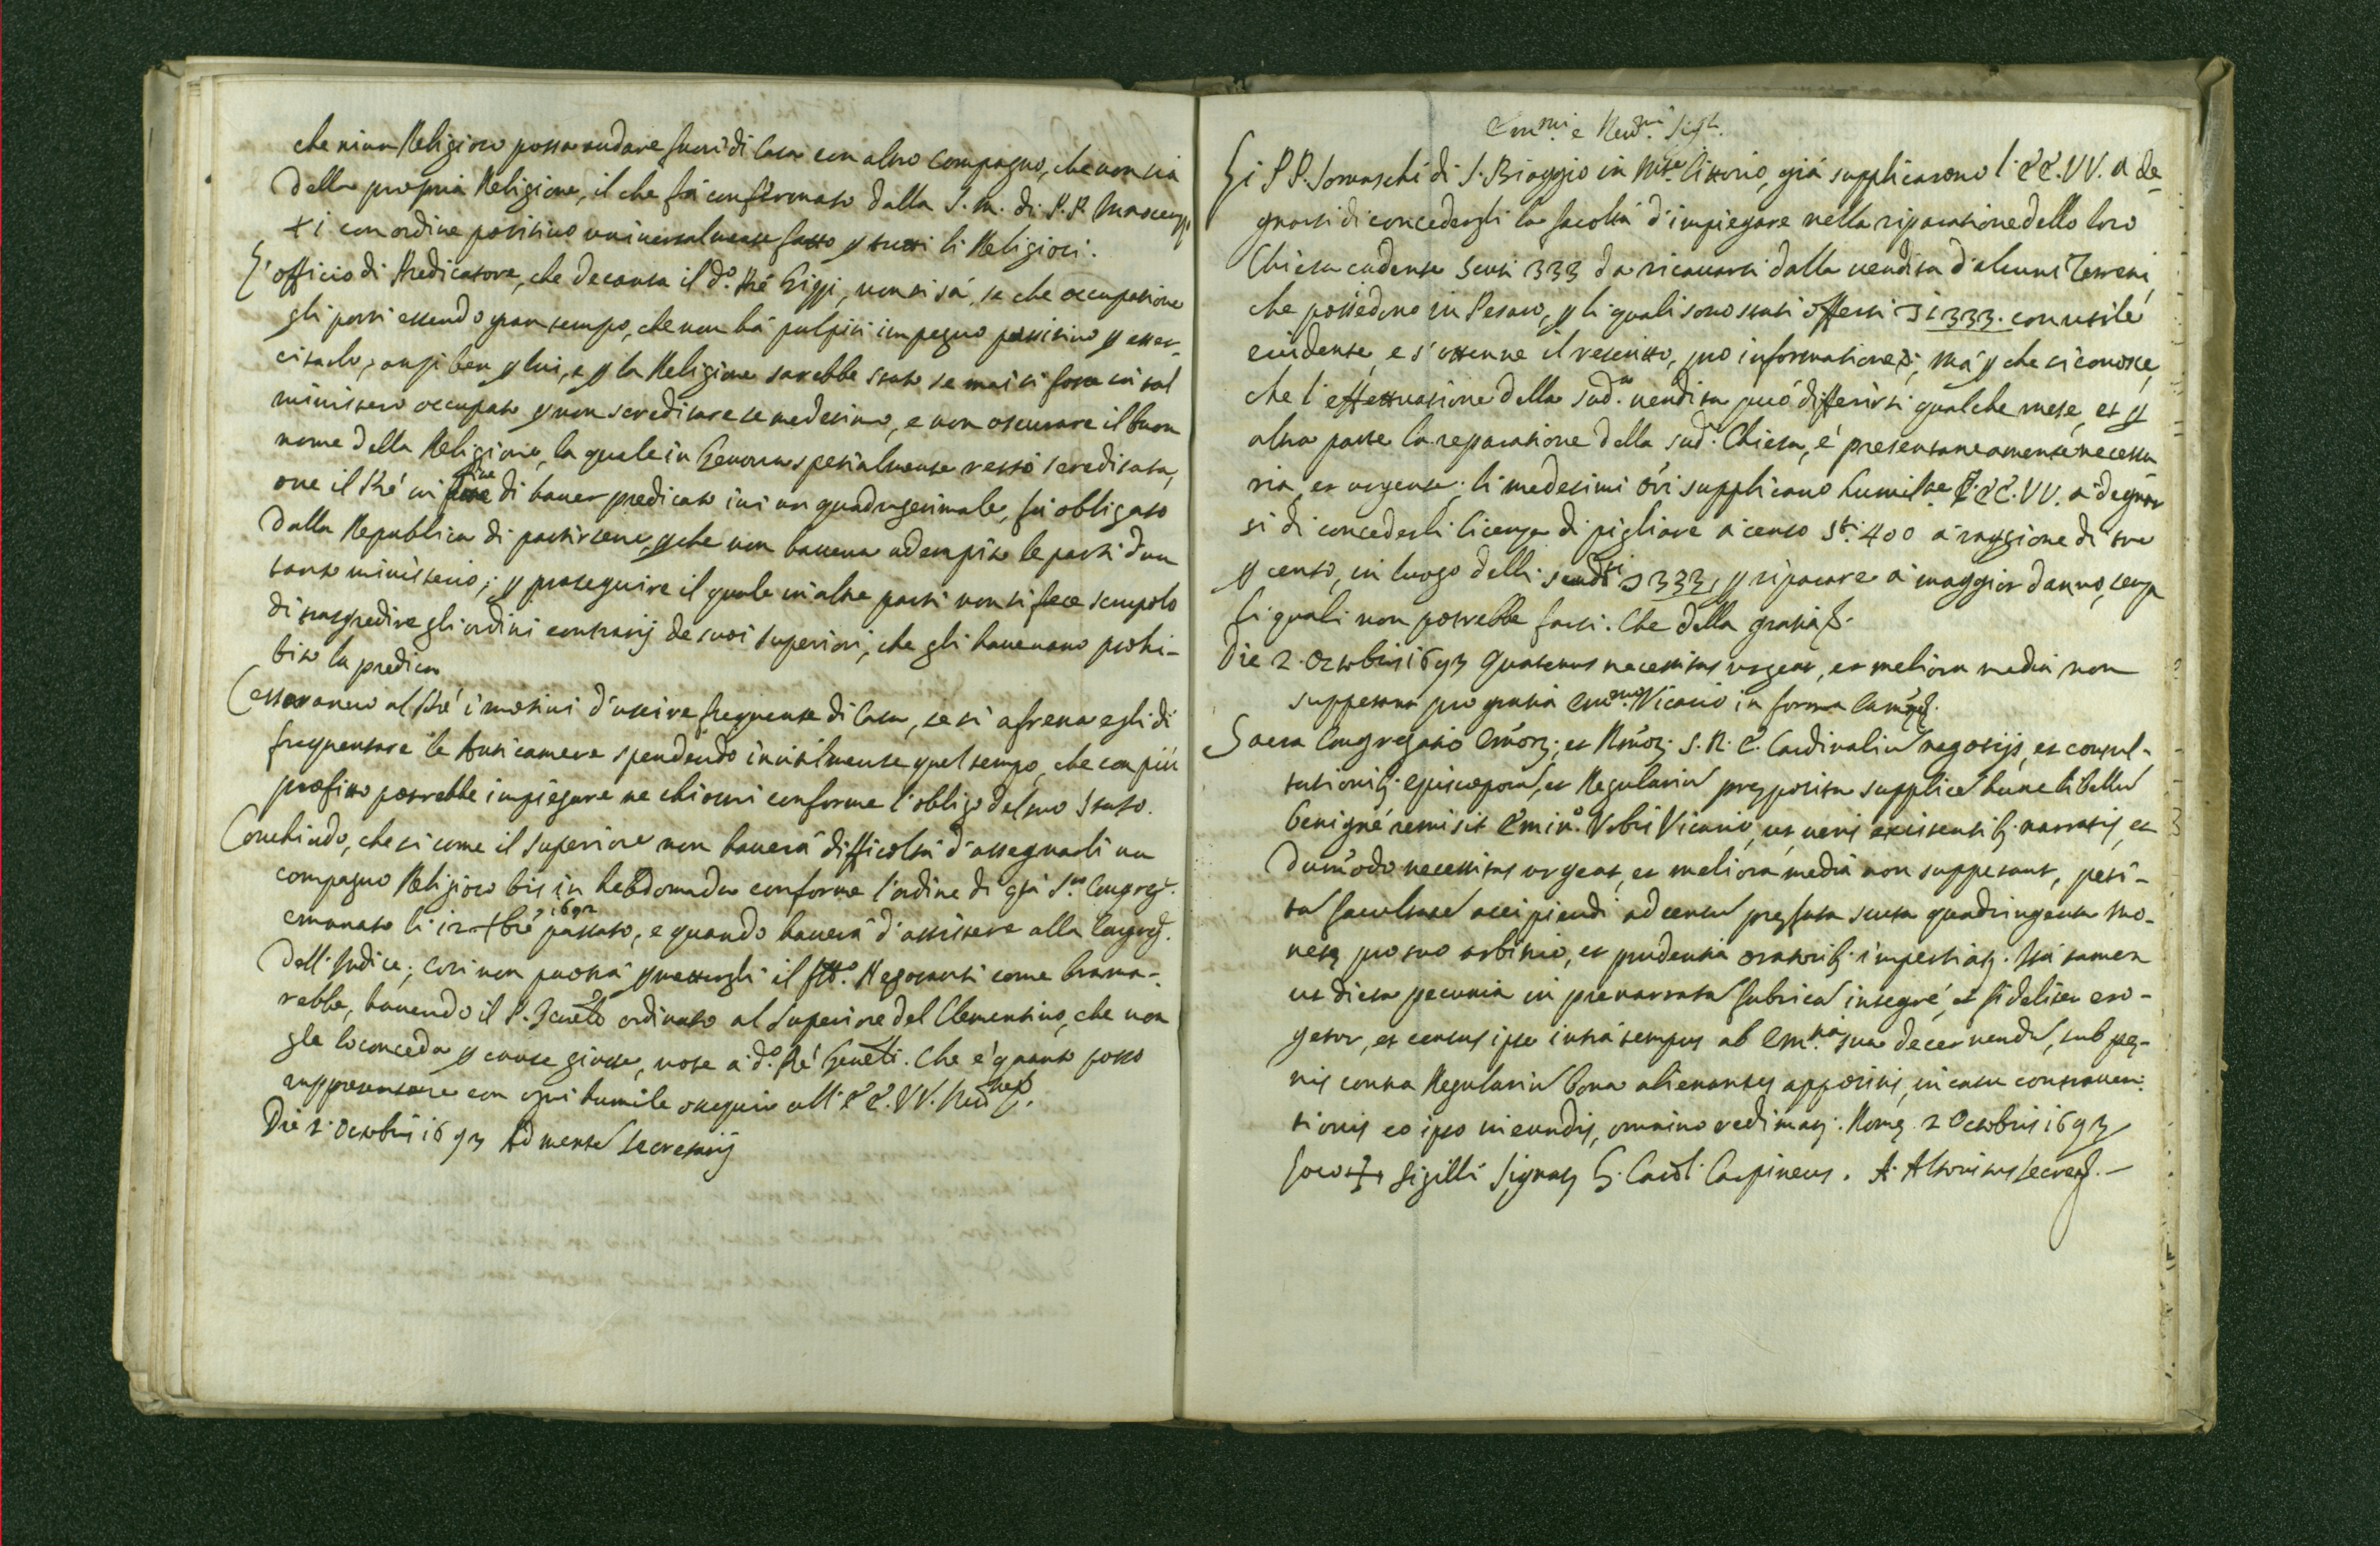 che niun Religioso possa andare fuori di Casa con altro Compagno, che non sia
della propria Religione, il che fù confermato dalla S. M. di P. P. Innocenzo
XI con ordine positivo universalmente fatto p tutti li Religiosi.
L'officio di Predicatore, che decanta il d.º Pré Gippi, non si sá, se che occupatione
gli porti essendo gran tempo, che non há pulpiti impegno positivo p esser-
citarlo; anzi ben p lui, e p la Religione sarebbe stato se mai si fosse in tal
ministero occupato p non screditare se medesimo, e non oscurare il buon
nome della Religione, la quale in Genova spetialmente restò screditata,
ove il Pré in fine di haver predicato ivi un quadragesimale, fù obligato
dalla Republica di partirsene, p che non haveva adempito le parti d'un
tanto ministerio; p proseguire il quale in altre parti non si fece scrupolo
di trasgredire gli ordini contrarij de suoi Superiori, che gli havevano prohi-
bito la predica
Cessaranno al Pré i motivi d'uscire frequente di Casa, se si afrena egli di
frequentare le Anticamere spendendo inutilmente quel tempo, che con più
profitto potrebbe impiegare ne chiostri conforme l'obligo del suo Stato.
Conchiudo, che si come il Superiore non haverá difficoltá d'assegnarli un
compagno Religioso bis in hebdomada conforme l'ordine di q̃sta S.ra Congreg.
emanato li 12 7bre 1692 passato, e quando haverá d'assistere alla Congreg.
dell'Indice; Cosi non puotrá p̃mettergli il Negotianti come brama-
rebbe, havendo il P. Gnãle ordinato al Superiore del Clementino, che non
gle lo conceda p cause giuste, note a d.º Pré Gnãle. Che é quanto posso
rappresentare con ogni humile ossequio all' EE. VV. Reũme.
Die 2. Octobris 1693 Ad mentẽ Secretarij
Em.mi e Reud.mi Sig.ri
Li PP. Somaschi di S. Biaggio in Mte Cittorio, giá supplicarono l' EE. VV. a de-
gnarsi di concedergli la facoltá d'impiegare nella riparatione dello loro
Chiesa cadente Scuti 333 da ricavarsi dalla vendita d'alcuni Terreni,
che possiedono in Pesaro, p li quali sono stati offerti 1333. con utile
evidente, e s'ottenne il rescritto, pro informatione; Má p che si conosce,
che l'effettuatione della sud.a vendita può differirsi qualche mese, et p
altra parte la reparatione della sud.a Chiesa, é presentaneamente necessa
ria, et urgente; li medesimi Ori supplicano humilte l' EE. VV. a degnar
si di concederli licenza di pigliare a censo Sti. 400 a raggione di tre
p cento, in luogo delli scudi 333, p riparare a maggior danno, senza
li quali non potrebbe farsi. Che della gratia &.
Die 2. Octobris 1693 Quatenus necessitas urgeat, et meliora media non
suppetant pro gratia Emo. Vicario in forma Camere.
Sacra Congregatio Emõrũ; et Rmõrũ S. R. E. Cardinaliũ negotijs, et consul-
tationibʒ Episcoporũ, et Regulariũ preposita supplicẽ hunc libellũ
benigné remisit Emin.o Urbis Vicario, ut veris existentibʒ narratis, et
dumodo necessitas urgeat, et meliora media non suppetant, peti-
tã facultatẽ accipiendi ad censũ prefata scuta quadringenta mo-
nete pro suo arbitrio, et prudentia oratoribʒ impertiatʒ. Ita tamen
ut dicta pecunia in prenarratã fabricã integré, et fideliter ero-
getur, et census ipse intra tempus ab Em.tia sua decernendũ, sub pe-
nis contra Regulariũ bona alienantes appositis, in casu contraven-
tionis eo ipso incurrendis, omnino redimatʒ. Rome 2 Octobris 1693
Loco + Sigilli Signatʒ G. Card. Carpineus. A. Altovitus Secret.